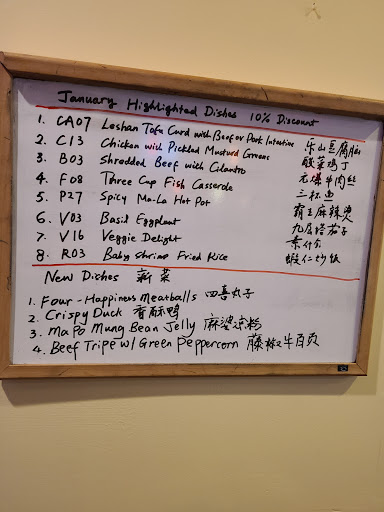 January Highlighted Dishes 10% Discount
1. CA07 Leshan Tofu Curd with Beef or Pork Intestine 乐山豆腐脑
2. C13 Chicken with Pickled Mustard Greens 酸菜鸡丁
3. B03 Shredded Beef with Cilantro 芫爆牛肉丝
4. F08 Three Cup Fish Casserole 三杯鱼
5. P27 Spicy Ma-La Hot Pot 霸王麻辣烫
6. V03 Basil Eggplant 九层塔茄子
7. V16 Veggie Delight 素什锦
8. R03 Baby Shrimp Fried Rice 虾仁炒饭
New Dishes 新菜
1. Four-Happiness Meatballs 四喜丸子
2. Crispy Duck 香酥鸭
3. Ma Po Mung Bean Jelly 麻婆凉粉
4. Beef Tripe w/ Green Peppercorn 藤椒牛百页